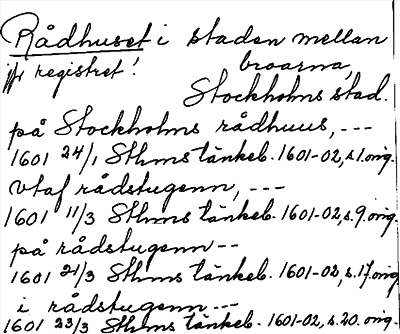 Rådhuset i staden mellan
jfr registret! broarna,
Stockholms stad.
på Stockholms rådhuus, ---
1601 24/1 Sthms tänkeb. 1601-02, s.1. orig.
vtaf rådstugenn, ---
1601 11/3 Sthms tänkeb. 1601-02, s.9. orig.
på rådstugenn --
1601 21/3 Sthms tänkeb. 1601-02, s.17. orig.
i rådstugenn ---
1601 23/3 Sthms tänkeb. 1601-02, s.20. orig.